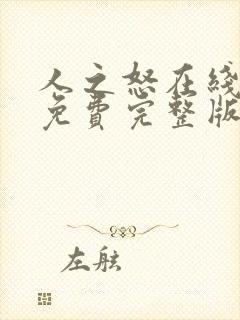 人之怒在綫
免費完整版
左舷